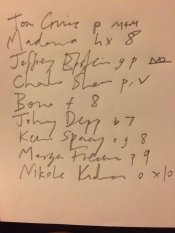 Tom Cruise p MMM
Madonna h x 8
Jeffrey Epstein g p
Charlie Sheen p, v
Bono + 8
Johny Depp b 7
Kevin Spacey r g 8
Morgan Freeman p 9
Nikole Kidman o x 10